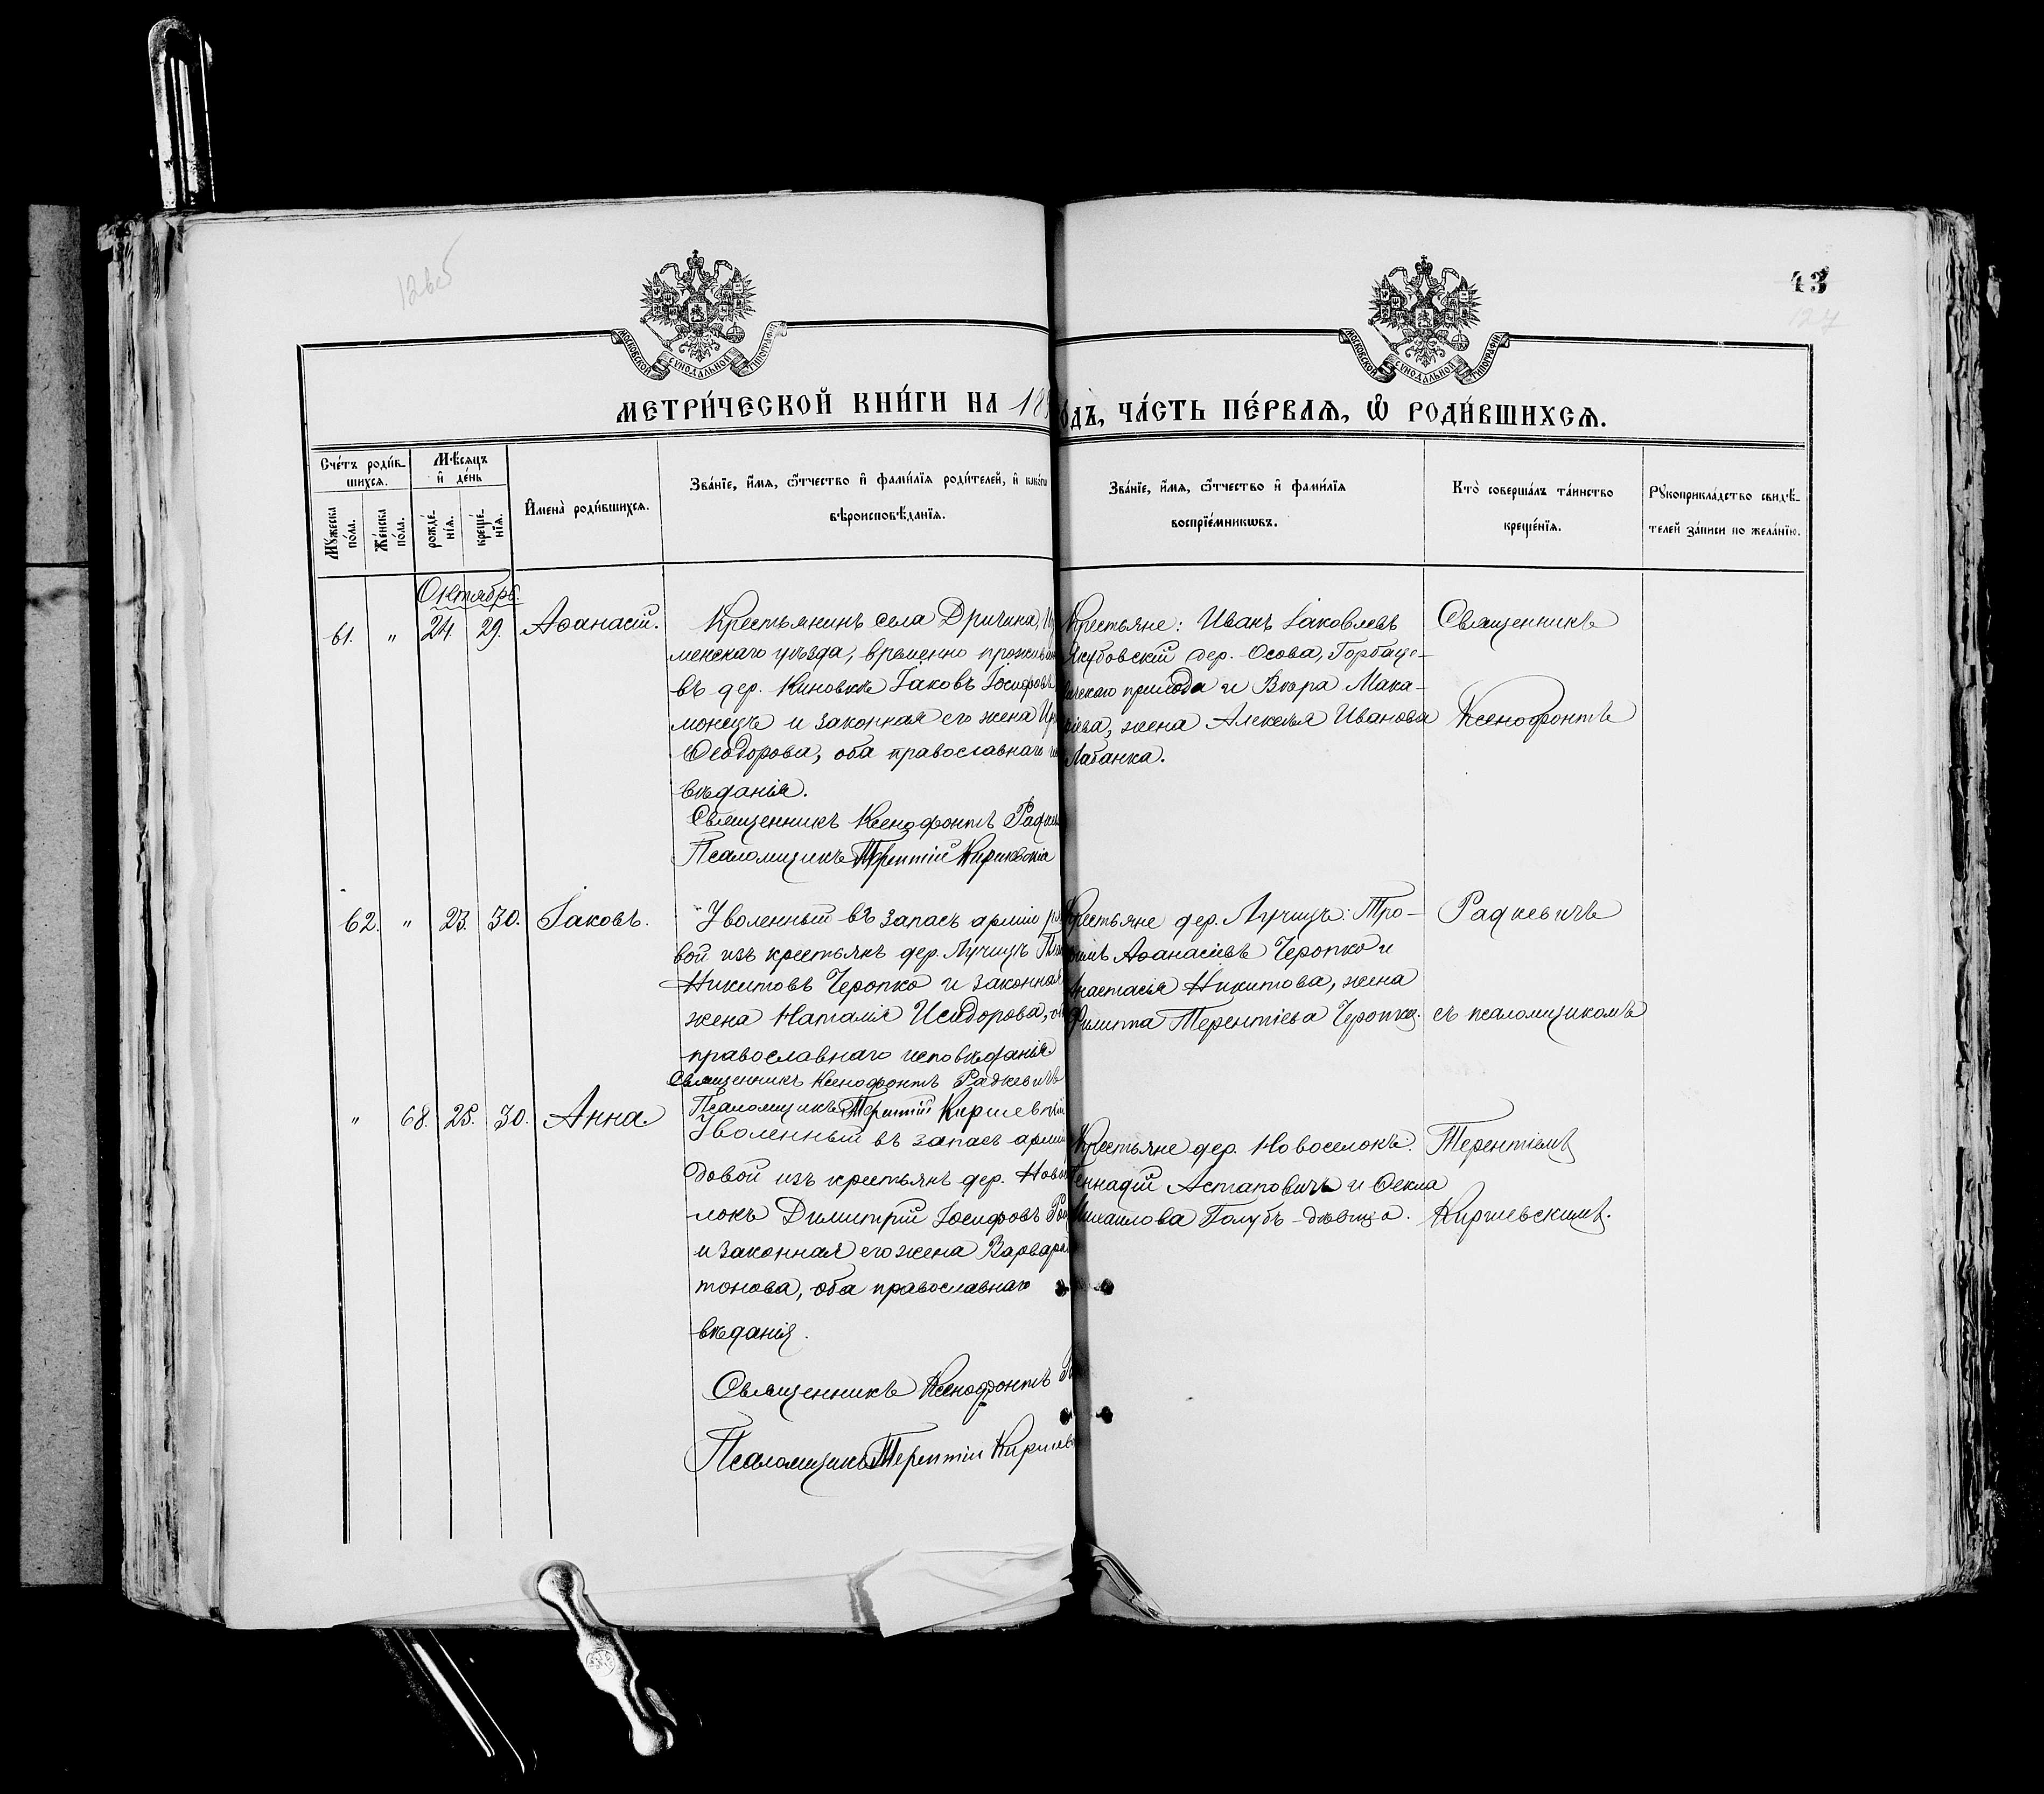 43
МОСКОВСКОЙ СУНОДАЛЬНОЙ ТИПОГРАФІИ
МОСКОВСКОЙ СУНОДАЛЬНОЙ ТИПОГРАФІИ
МЕТРИ́ЧЕСКОЙ КНИ́ГИ НА 18
ОДЪ, ЧА́СТЬ ПЕ́РВАѦ, Ѡ҆ РОДИ́ВШИХСѦ.
Сче́тъ роди́в-
шихся.
Мѣ́сяцъ
и҆ де́нь
Мꙋ́жеска
по́ла.
Же́нска
по́ла.
рожде́-
нїя.
креще́-
нїя.
И҆мена̀ роди́вшихся.
Зва́нїе, и҆́мя, ѻ҆́тчество и҆ фами́лїя роди́телей, и҆ како́гѡ
вѣроисповѣ́данїя.
Зва́нїе, и҆́мя, ѻ҆́тчество и҆ фами́лїя
воспрїе́мникѡвъ.
Кто̀ соверша́лъ та́инство
креще́нїя.
Рꙋкоприкла́дство свидѣ́-
телей за́писи по жела́нїю.
Октябрь.
61. " 24. 29. Аѳанасій.
Крестьянинъ села Дричина,
менскаго уѣзда, временно прожива
въ дер. Киновкѣ Іаковъ Іосифовъ
монецъ и законная его жена
Ѳеодорова, оба православнаго
вѣданія.
Священникъ Ксенофонтъ Радке
Псаломщикъ Терентій Киркевскій
Крестьяне: Иванъ Іаковлевъ
Якубовскій дер. Осова, Горбаце-
вичскаго прихода и Вѣра Мака-
ріева, жена Алексѣя Иванова
Лабанка.
Священникъ
Ксенофонтъ
62. " 23. 30. Іаковъ.
Уволенный въ запасъ арміи ря
вой изъ крестьянъ дер. Лучицъ
Никитовъ Черопко и законная
жена Наталія Исидорова, об
православнаго исповѣданія
Священникъ Ксенофонтъ Радкевичъ
Псаломщикъ Терентій Киркевскій
Крестьяне дер. Лучицъ: Тро-
фимъ Аѳанасіевъ Черопко и
Анастасія Никитова, жена
Филиппа Терентіева Черопко.
Радкевичъ
съ псаломщикомъ
" 68. 25. 30. Анна
Уволенный въ запасъ арміи
довой изъ крестьянъ дер. Новос
локъ Димитрій Іосифовъ
и законная его жена Варвара
тонова, оба православнаго
вѣданія.
Священникъ Ксенофонтъ
Псаломщикъ Терентій Киркев
Крестьяне дер. Новоселокъ:
Геннадій Астаповичъ и Ѳекла
Михаилова Голубъ-дѣвица.
Терентіемъ
Киркевскимъ.